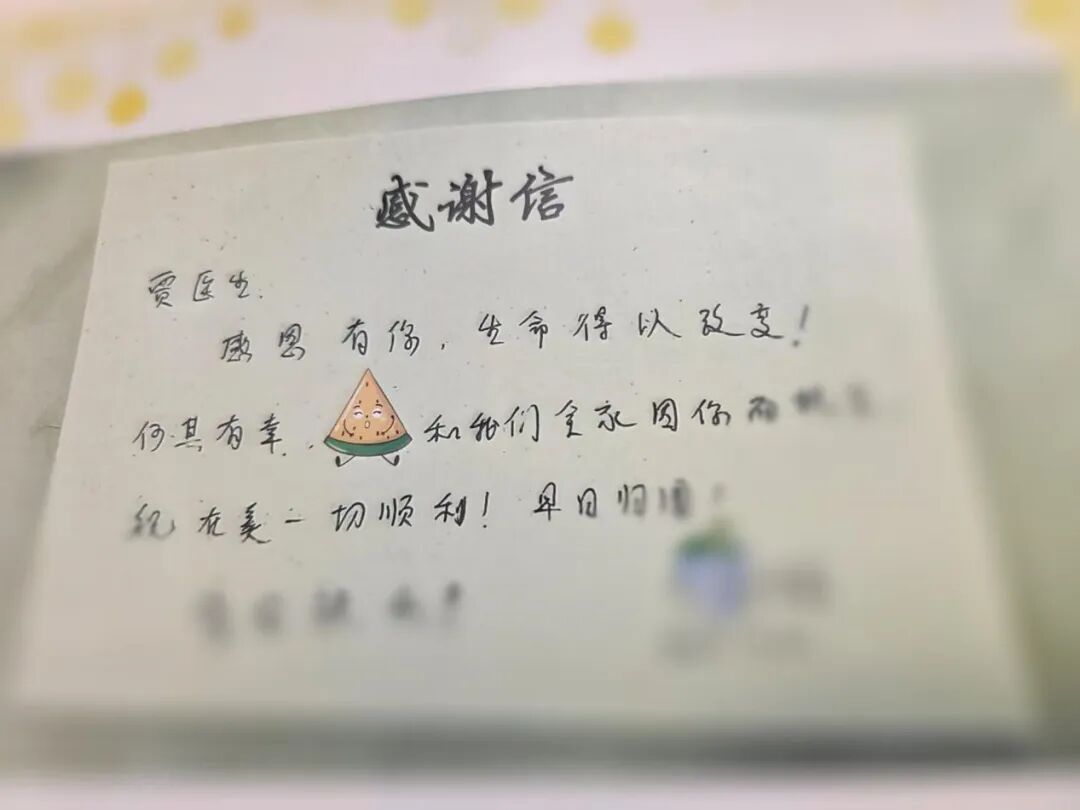 感谢信
贾医生.
感恩有你,生命得以改变!
何其有幸,和我们全家因你而
祝在美一切顺利!早日归国!